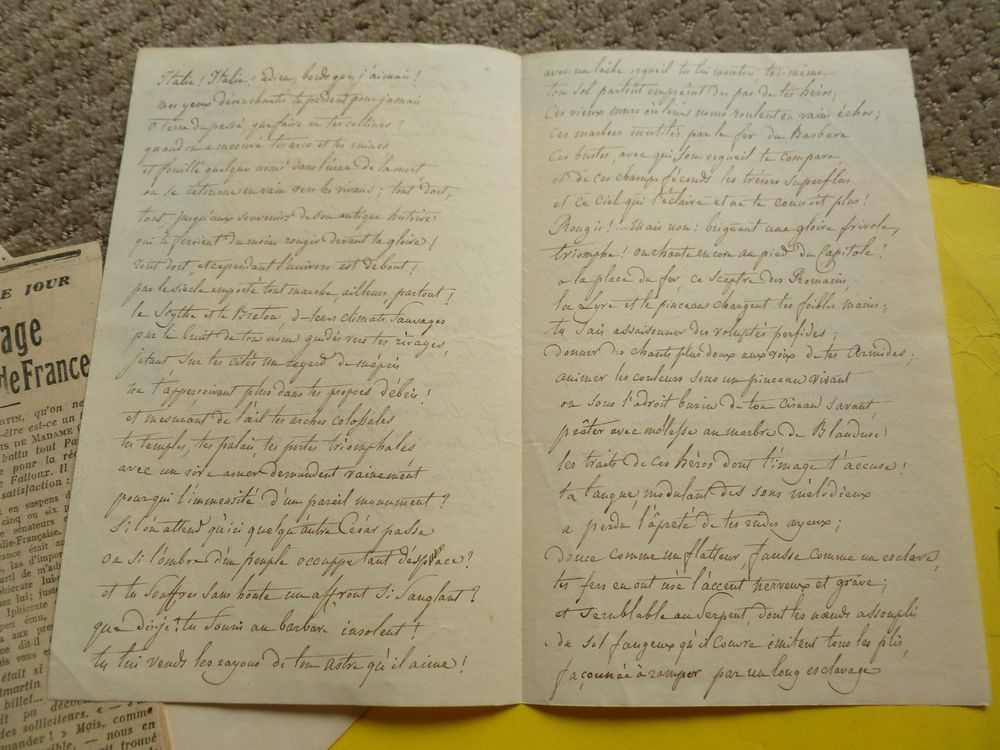 Italie ! Italie ! adieu, bords que j'aimais !
mes yeux désenchantés te perdent pour jamais
O terre du passé, que faire en tes collines ?
quand on a mesuré tes arcs et tes ruines
et fouillé quelques noms dans l'urne de la mort
on se retourne en vain vers les vivans ; tout dort,
tout, jusqu'aux souvenirs de son antique histoire
qui te feroient du moins rougir devant ta gloire !
Tout dort, et cependant l'univers est debout !
par le siècle emporté tout marche, ailleurs, partout !
le Scythe et le Breton, de leurs climats sauvages
par le bruit de ton nom guidés vers tes rivages,
jetant sur tes cités un regard de mépris
ne t'apperçoivent plus dans tes propres débris !
et mesurant de l'œil tes arches colossales
tes temples, tes palais, tes portes triomphales
avec un rire amer demandent vainement
pour qui l'immensité d'un pareil monument ?
Si l'on attend qu'ici quelqu'autre César passe
ou si l'ombre d'un peuple occuppe tant d'espace ?
et tu souffres sans honte un affront si sanglant ?
que dis-je ? tu souris au barbare insolent !
tu lui vends les rayons de ton astre qu'il aime !
avec un lâche orgueil tu lui montres toi-même
ton sol partout empreint du pas de tes héros,
Ces vieux murs où leurs noms roulent en vains échos ;
Ces marbres mutilés par le fer du Barbare
Ces bustes, avec qui son orgueil te compare,
et de ces champs féconds les trésors superflus
et ce Ciel qui t'éclaire et ne te connoit plus !
Rougis !... Mais non : briguant une gloire frivole,
triomphe ! on chante encore au pied du Capitole !
a la place du fer, ce sceptre des Romains,
la Lyre et le pinceau chargent tes foibles mains ;
tu sais assaisonner des voluptés perfides ;
donner des chants plus doux aux voix de tes Armides ;
animer les couleurs sous un pinceau vivant
ou sous l'adroit burin de ton ciseau savant,
prêter avec molesse au marbre de Blanduse
les traits de ces héros dont l'image t'accuse !
ta langue, modulant des sons mélodieux
a perdu l'âpreté de tes rudes ayeux ;
douce comme un flatteur, fausse comme un esclave,
tes fers en ont usé l'accent nerveux et grave ;
et semblable au serpent, dont les nœuds assouplis
du sol fangeux qu'il couvre imitent tous les plis,
façonnée à ramper par un long esclavage
E JOUR
age
de France
RTIN, qu'on ne
-être est-ce un
IS DE MADAME
battu tout Pa
e pour la réc
Falloux. Il
satisfaction :
t en suspens d
cinq ou six p
e sénateurs e
die-Française.
ance était ar
, las d'impor
parti de m'ad
phicrate lui-
ez lui; just
Iphicrate
peu ému,
a aux pres
me dit-il
ais vous e
était si
ntmartin
billet...
it pu décou
des solliciteurs. « — s'
mander ! » Mais, comme
— nous en
rait trouvé